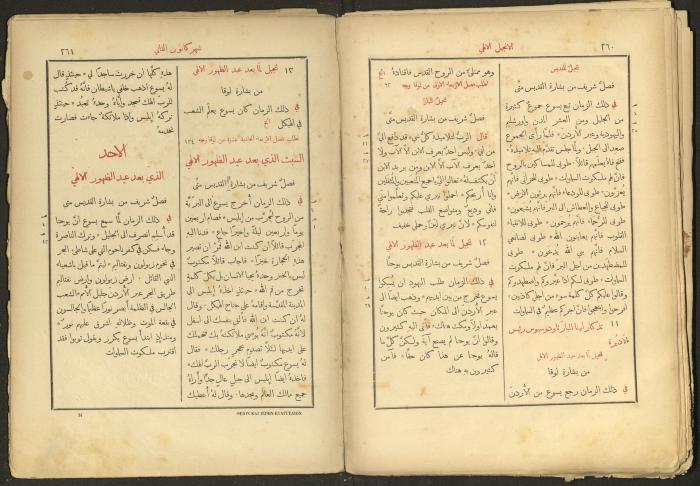 ٢٦٠
الانجيل الالهي
انجيل للقديس
فصل شريف من بشارة القديس متى
في ذلك الزمان تبع يسوع جموع كثيرة
من الجليل ومن العشر المدن واورشليم
واليهودية وعبر الأردن* فلما رأى الجموع
صعد الى الجبل* ولما جلس تقدم اليه تلاميذه*
ففتح فاه يعلمهم قائلاً* طوبى للمساكين بالروح
فان لهم ملكوت السماوات* طوبى للحزانى فانهم
يُعزَّون* طوبى للودعاء فانهم يرثون الارض*
طوبى للجياع والعطاش الى البر فانهم يشبعون*
طوبى للرحماء فانهم يُرحمون* طوبى للانقياء
القلوب فانهم يعاينون الله* طوبى لصانعي
السلام فانهم بني الله يُدعون* طوبى
للمضطهدين من اجل البر فان لهم ملكوت
السماوات* طوبى لكم اذا عيروكم واضطهدوكم
وقالوا عليكم كل كلمة سوء من اجلي كاذبين*
افرحوا وابتهجوا فان اجركم عظيم في السماوات*
١١ تذكار ابينا البار ثاودوسيوس رئيس
الاديرة
انجيل لما بعد عيد الظهور الالهي
من بشارة لوقا
في ذلك الزمان رجع يسوع من الأردن
وهو ممتلئ من الروح القدس فاقتاده الخ
تطلب فصل الاربعاء الاول من لوقا وجه ٩٢
انجيل البار
قال الرب لتلاميذه كل شيء قد دفع اليَّ
من ابي وليس احد يعرف الابن الا الآب ولا
احد يعرف الآب الا الابن ومن يريد الابن
ان يكشف له* تعالوا اليَّ يا جميع المتعبين والمثقلين
وانا اريحكم* احملوا نيري عليكم وتعلموا مني
فاني وديع ومتواضع القلب فتجدوا راحة
لنفوسكم* لان نيري لين وحملي خفيف
١٢ انجيل لما بعد عيد الظهور الالهي
فصل شريف من بشارة القديس يوحنا
في ذلك الزمان طلب اليهود ان يمسكوا
يسوع فخرج من بين ايديهم* وذهب ايضا الى
عبر الأردن الى المكان حيث كان يوحنا
يعمد اولاً ومكث هناك* فاتى اليه كثيرون
وقالوا ان يوحنا لم يصنع آية ولكن كل ما
قاله يوحنا عن هذا كان حقًا* فآمن
كثيرون به هناك
شهر كانون الثاني
٢٦١
١٣ انجيل لما بعد عيد الظهور الالهي
من بشارة لوقا
في ذلك الزمان كان يسوع يعلم الشعب
في الهيكل الخ
تطلب فصل الاربعاء الحادية عشرة من لوقا وجه ١٢٤
السبت الذي بعد عيد الظهور الالهي
فصل شريف من بشارة القديس متى
في ذلك الزمان أُخرج يسوع الى البرية
من الروح ليُجرَّب من ابليس* فصام اربعين
يوماً واربعين ليلة واخيرًا جاع* فدنا اليه
المجرب قائلاً ان كنت ابن الله فمُر ان تصير
هذه الحجارة خبزًا* فاجاب قائلاً مكتوب
ليس بالخبز وحده يحيا الانسان بل بكل كلمة
تخرج من فم الله* حينئذٍ اخذه ابليس الى
المدينة المقدسة واقامه على جناح الهيكل* وقال
له ان كنت ابن الله فألقِ بنفسك الى اسفل
لانه مكتوب انه يوصي ملائكته بك فتحملك
على ايديها لئلا تصدم بحجر رجلك* فقال
له يسوع مكتوب ايضا لا تجرب الرب الهك*
فاخذه ايضا ابليس الى جبل عالٍ جدًا واراه
جميع ممالك العالم ومجدها* وقال له أعطيك
هذه كلها ان خررت ساجدا لي* حينئذٍ قال
له يسوع اذهب خلفي يا شيطان فانه قد كُتب
للرب الهك تسجد واياه وحده تعبد* حينئذٍ
تركه ابليس واذا ملائكة جاءت فصارت
تخدمه
الاحد
الذي بعد عيد الظهور الالهي
فصل شريف من بشارة القديس متى
في ذلك الزمان لما سمع يسوع ان يوحنا
قد أُسلم انصرف الى الجليل* وترك الناصرة
وجاء فسكن في كفرناحوم التي على شاطئ البحر
في تخوم زبولون ونفتاليم* ليتم ما قيل باشعياء
النبي القائل* ارض زبولون وارض نفتاليم
طريق البحر عبر الأردن جليل الأمم* الشعب
الجالس في الظلمة أبصر نورًا عظيمًا والجالسون
في بقعة الموت وظلاله اشرق عليهم نور*
ومنذئذٍ ابتدأ يسوع يكرز ويقول توبوا فقد
اقترب ملكوت السماوات
34
ΘΕΙΟΝ ΚΑΙ ΙΕΡΟΝ ΕΥΑΓΓΕΛΙΟΝ